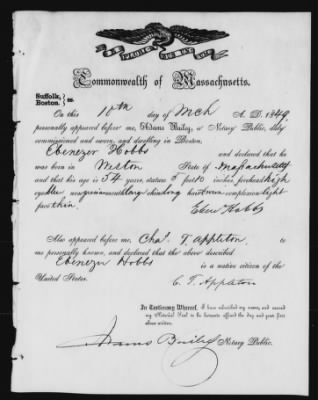 E PLURIBUS UNUM
Commonwealth of Massachusetts.
Suffolk, ss.
Boston.
On this 10th day of Mch A. D. 1849,
personally appeared before me, Adams Bailey, a Notary Public, duly
commissioned and sworn, and dwelling in Boston,
Ebenezer Hobbs and declared that he
was born in Weston State of Massachusetts
and that his age is 54 years, stature 5 feet 10 inches, forehead high
eyes blue nose prominent chin long hair brown complexion light
face thin
Eben Hobbs
Also appeared before me, Chas. T. Appleton, to
me personally known, and declared that the above described
Ebenezer Hobbs is a native citizen of the
United States.
C. T. Appleton
In Testimony Whereof, I have subscribed my name, and caused
my Notarial Seal to be hereunto affixed the day and year first
above written.
Adams Bailey Notary Public.